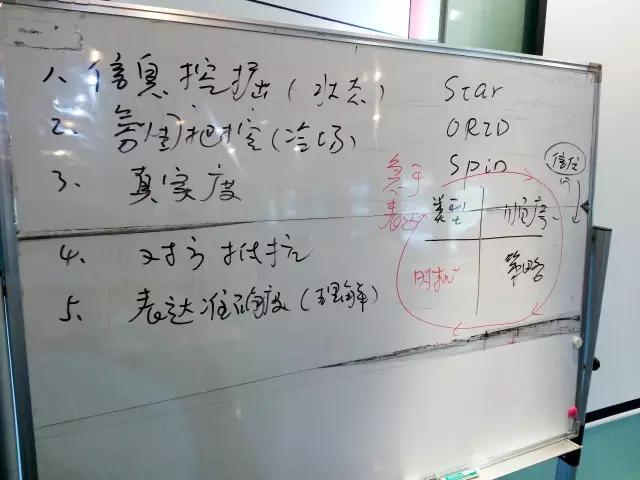 1、信息挖掘(状态)
2、氛围把控(冷场)
3、真实度
4、对方抵抗
5、表达准确度(理解)
Star
ORID
Spin
急于
表达
信任
类型
顺序
时机
策略